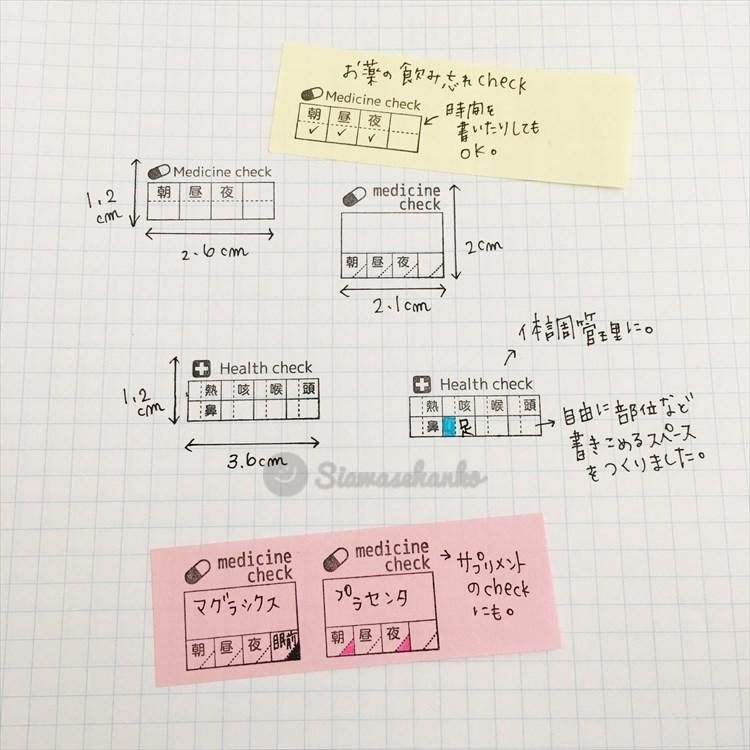 お薬の飲み忘れcheck
Medicine check
朝 昼 夜
時間を
書いたりしても
OK。
Medicine check
朝 昼 夜
1.2
cm
2.6cm
medicine
check
朝 昼 夜
2cm
2.1cm
Health check
熱 咳 喉 頭
鼻
1.2
cm
3.6cm
体調管理に。
Health check
熱 咳 喉 頭
鼻 足
自由に部位など
書きこめるスペース
をつくりました。
Siawasehanko
medicine
check
マグラックス
朝 昼 夜 眠前
medicine
check
プラセンタ
朝 昼 夜
サプリメント
のcheck
にも。